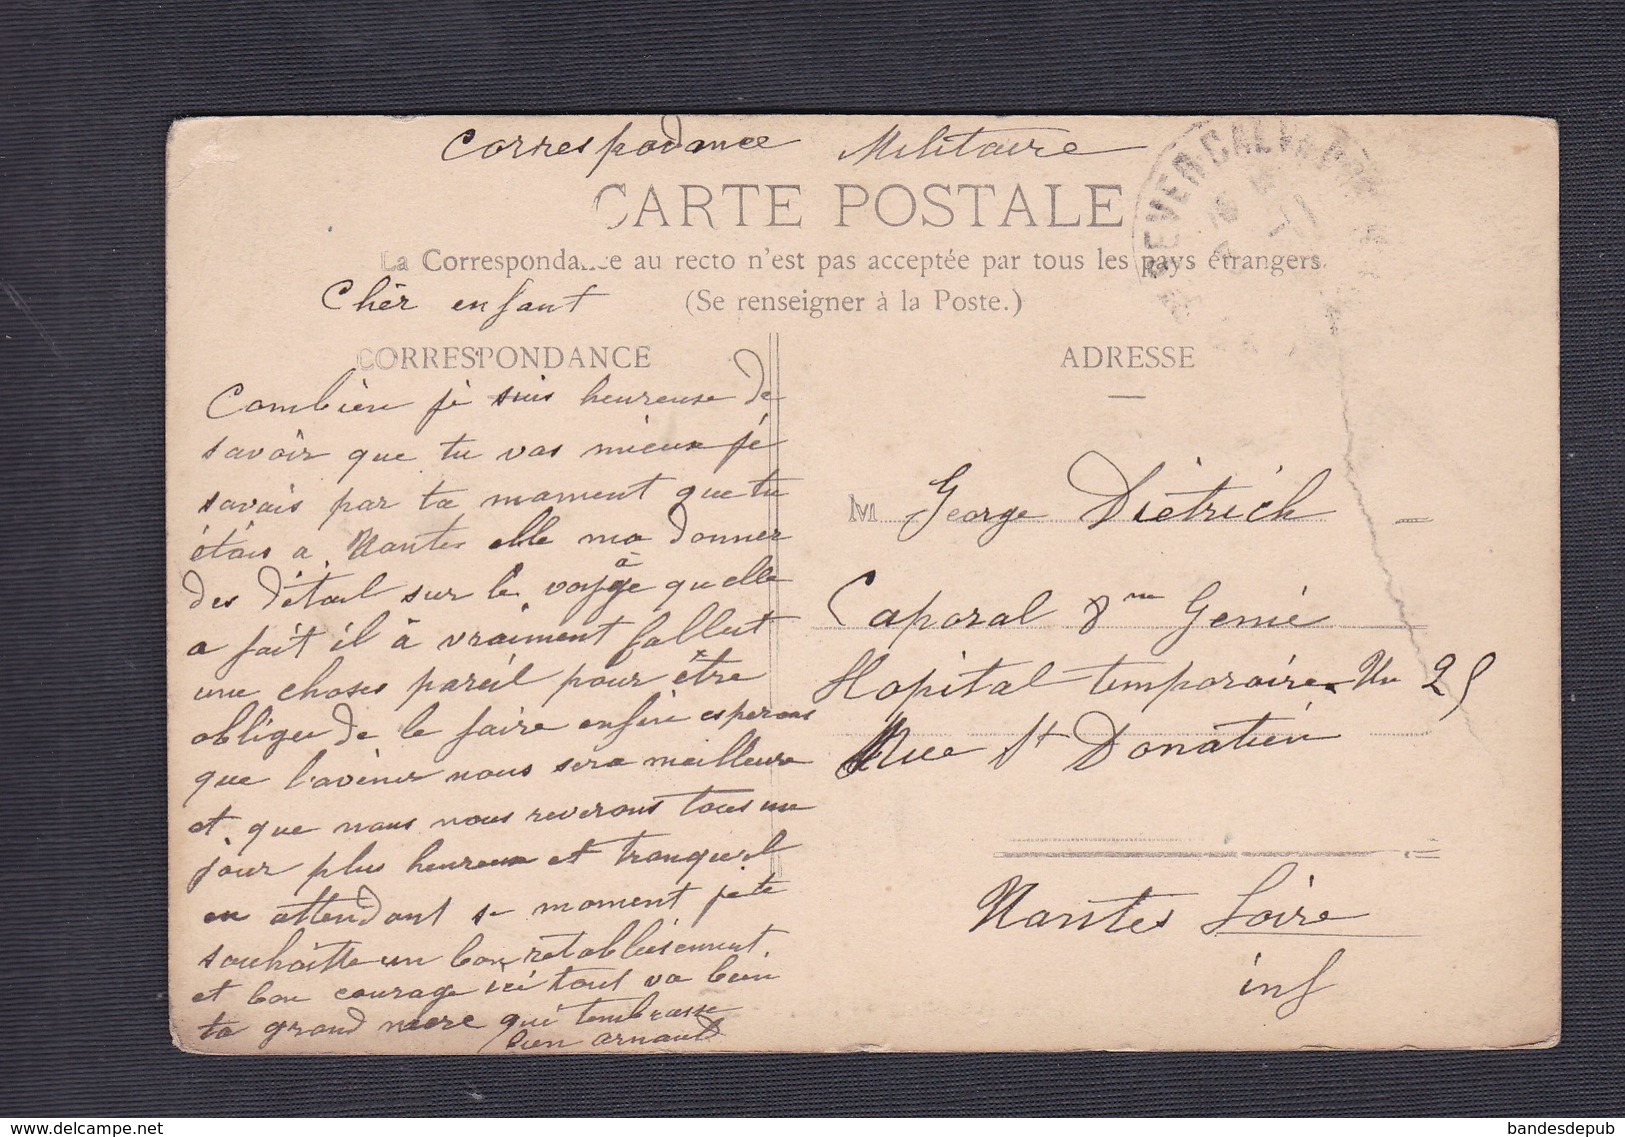 Correspodance Militaire
CARTE POSTALE
La Correspondance au recto n'est pas acceptée par tous les pays étrangers.
(Se renseigner à la Poste.)
Chèr enfant
CORRESPONDANCE
Combien je suis heureuse de
savoir que tu vas mieux je
savais par ta mament que tu
étais a Nantes elle ma donner
des détail sur le voyage quelle
a fait il à vraiment fallut
une choses pareil pour être
obliger de le faire enfin esperons
que l'avenir nous sera meilleure
et que nous nous reverons tous un
jour plus heureux et tranquil
en attendant se moment je te
souhaitte un bon rétablisement
et bon courage ici tout va bien
ta grand mere qui tembrasse
bien arnault
ADRESSE
M George Dietrich
Caporal 8me Genie
Hopital temporaire No 25
Rue St Donatien
Nantes Loire
inf
CALVADOS
delcampe.net
bandesdepub